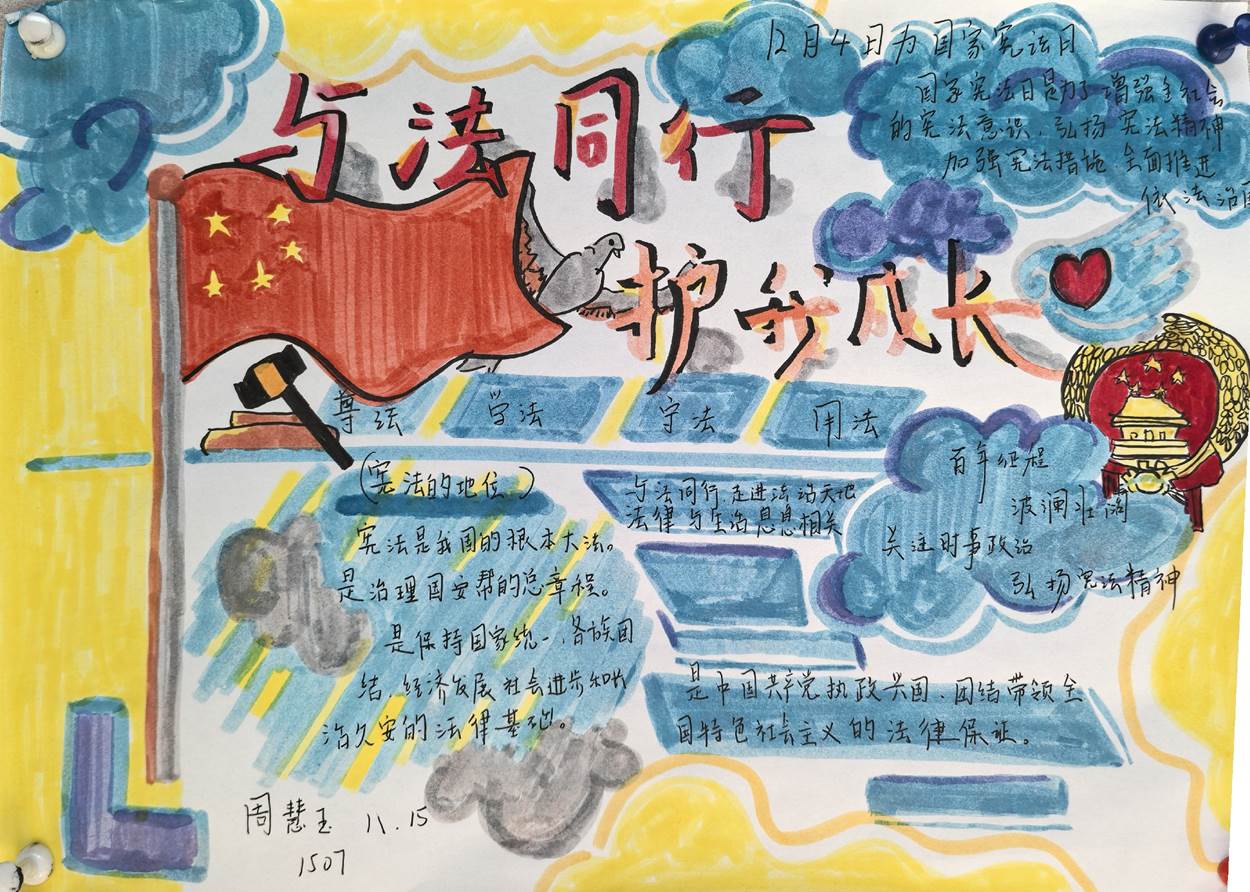 与法同行
护我成长
12月4日为国家宪法日
国家宪法日是为了增强全社会
的宪法意识，弘扬宪法精神
加强宪法措施，全面推进
依法治国
尊法 学法 守法 用法
(宪法的地位)
宪法是我国的根本大法。
是治理国安帮的总章程。
是保持国家统一、各族团
结、经济发展 社会进步和长
治久安的法律基础。
与法同行，走进法治天地
法律与生活息息相关
百年征程
波澜壮阔
关注时事政治
弘扬宪法精神
是中国共产党执政兴国、团结带领全
国特色社会主义的法律保证。
周慧玉 11.15
1507